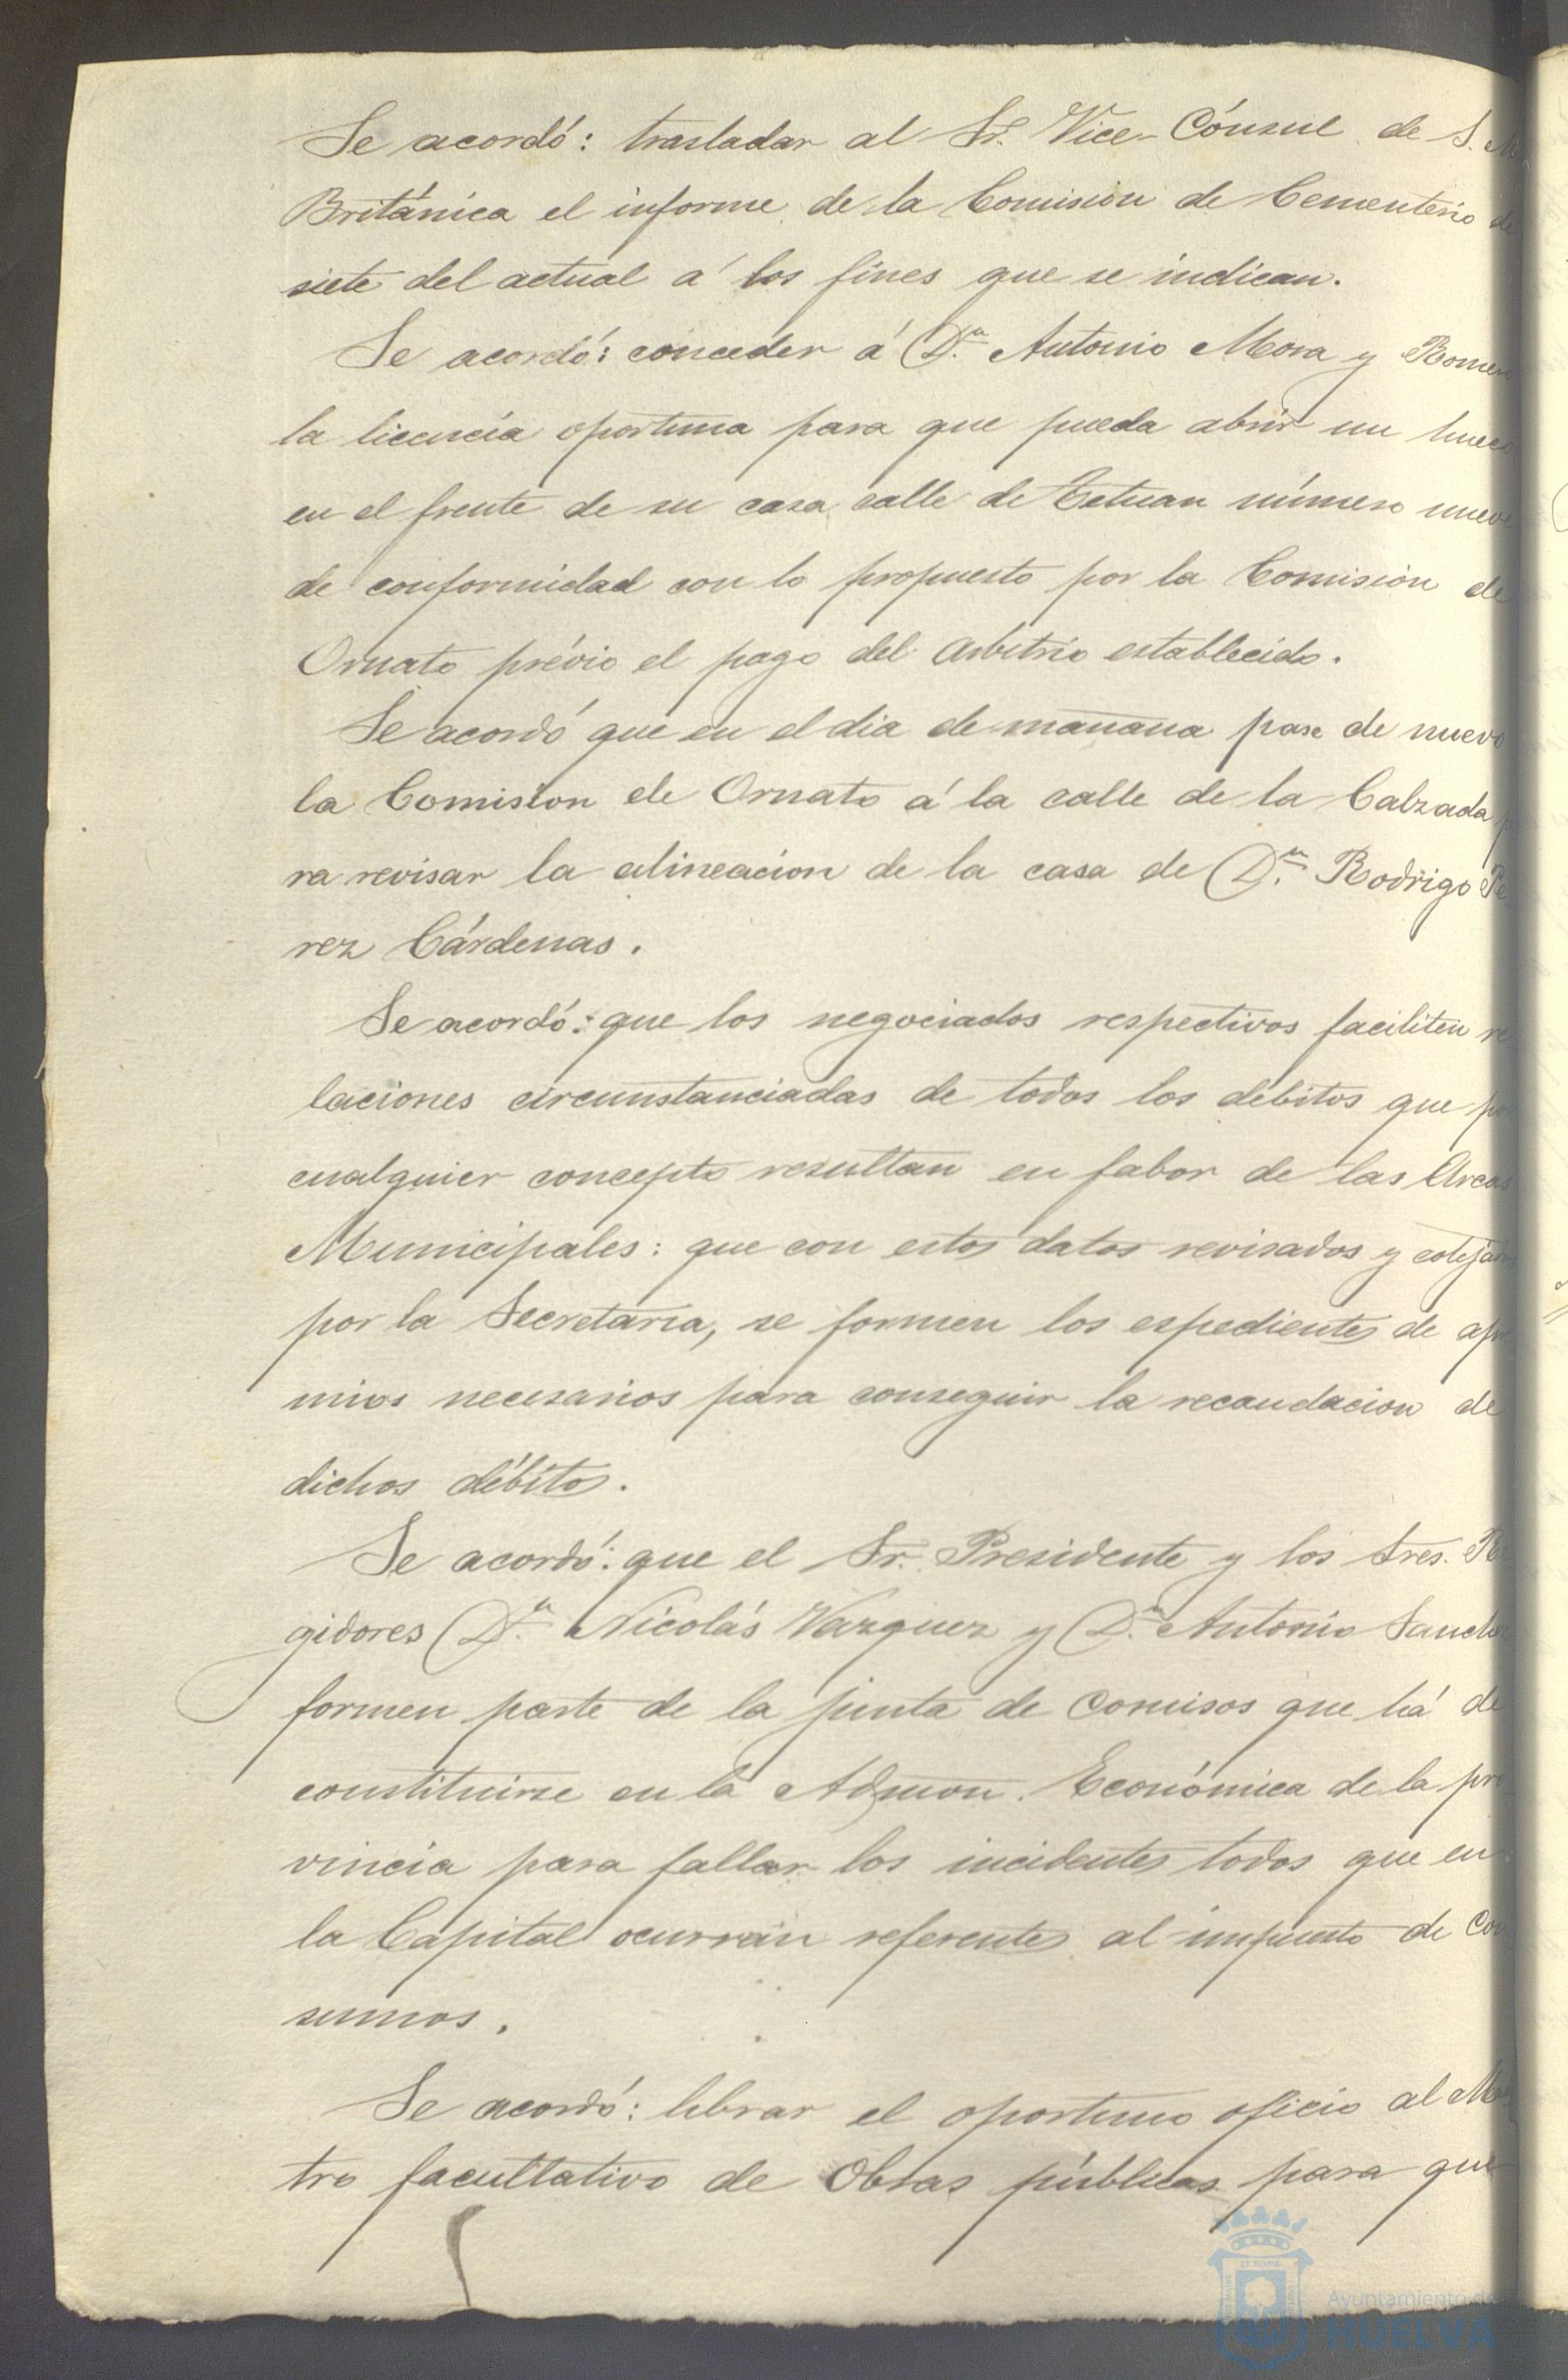 Se acordó: trasladar al Sr. Vice-Cónsul de S. M
Británica el informe de la Comision de Cementerio de
siete del actual á los fines que se indican.
Se acordó: conceder á Dn. Antonio Mora y Romero
la licencia oportuna para que pueda abrir un hueco
en el frente de su casa calle de Tetuan número nueve
de conformidad con lo propuesto por la Comisión de
Ornato prévio el pago del arbitrio establecido.
Se acordó que en el dia de mañana pase de nuevo
la Comision de Ornato á la calle de la Calzada
ra revisar la alineacion de la casa de Dn. Rodrigo Pe
rez Cárdenas.
Se acordó: que los negociados respectivos faciliten re
laciones circunstanciadas de todos los débitos que po
cualquier concepto resultan en fabor de las Arcas
Municipales: que con estos datos revisados y cotejad
por la Secretaria, se formen los espedientes de apr
mios necesarios para conseguir la recaudacion de
dichos débitos.
Se acordó: que el Sr. Presidente y los Sres. R
gidores Dn. Nicolás Vazquez y Dn. Antonio Sanche
formen parte de la junta de Comisos que há de
constituirse en la Admon. Económica de la pro
vincia para fallar los incidentes todos que en
la Capital ocurran referentes al impuesto de Con
sumos.
Se acordó: librar el oportuno oficio al Ma
tro facultativo de Obras públicas para que
Ayuntamiento de
HUELVA